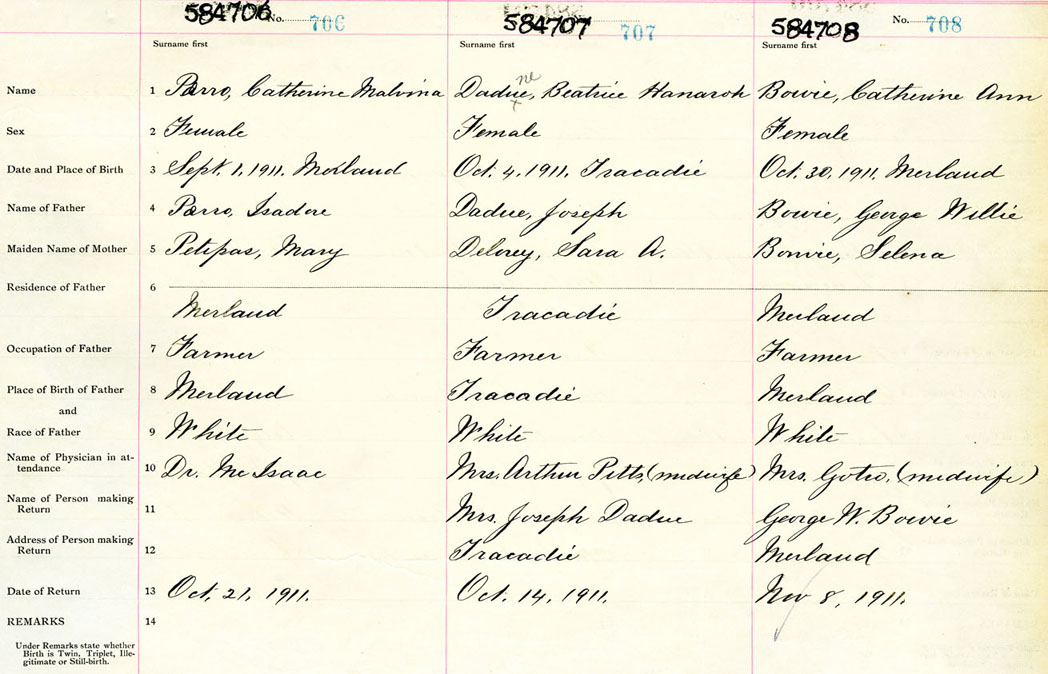 584706 No. 706 584707 707 584708 No. 708
Surname first Surname first Surname first
Name 1 Perro, Catherine Malvina Dadue, Beatrice Hanaroh Bowie, Catherine Ann
Sex 2 Female Female Female
Date and Place of Birth 3 Sept. 1, 1911. Merland Oct. 4, 1911. Tracadie Oct. 30, 1911. Merland
Name of Father 4 Perro, Isadore Dadue, Joseph Bowie, George Willie
Maiden Name of Mother 5 Petipas, Mary Delorey, Sara A. Bonvie, Selena
Residence of Father 6
Merland Tracadie Merland
Occupation of Father 7 Farmer Farmer Farmer
Place of Birth of Father 8 Merland Tracadie Merland
and
Race of Father 9 White White White
Name of Physician in at-
tendance 10 Dr. McIsaac Mrs. Arthur Pitts, (midwife) Mrs. Gotro, (midwife)
Name of Person making
Return 11 Mrs. Joseph Dadue George W. Bowie
Address of Person making
Return 12 Tracadie Merland
Date of Return 13 Oct. 21, 1911. Oct. 14, 1911. Nov 8, 1911.
REMARKS 14
Under Remarks state whether
Birth is Twin, Triplet, Ille-
gitimate or Still-birth.